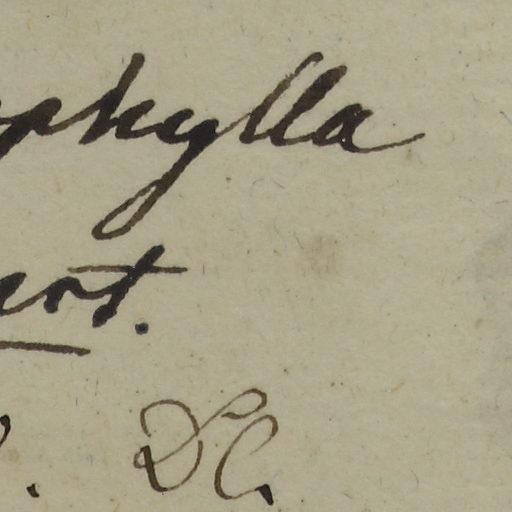 phylla
ert.
. DC.